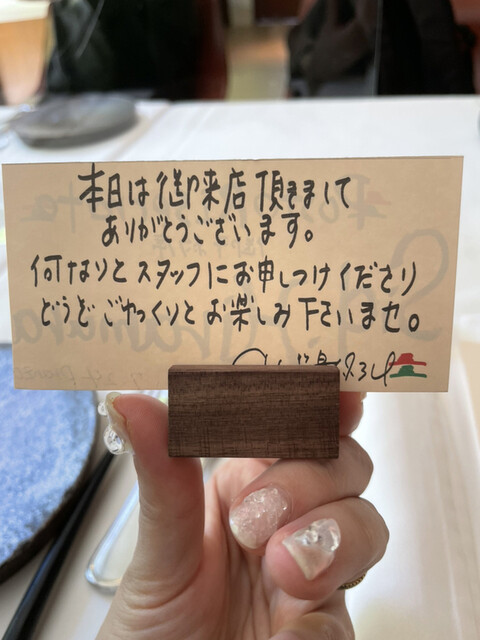 本日は御来店頂きまして
ありがとうございます。
何なりとスタッフにお申しつけくださり
どうぞごゆっくりとお楽しみ下さいませ。